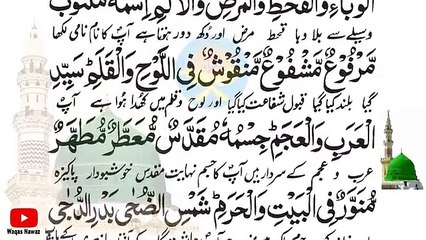 الْوَبَاءِ وَالْقَحْطِ وَالْمَرَضِ وَالْاَلَمِ اِسْمُهٗ مَكْتُوْبٌ
وسیلے سے بلا وبا قحط مرض اور دکھ دور ہوتا ہے آپؐ کا نام نامی لکھا
مَّرْفُوْعٌ مَّشْفُوْعٌ مَّنْقُوْشٌ فِی اللَّوْحِ وَالْقَلَمِ سَیِّدِ
گیا بلند کیا گیا قبول شفاعت کیا گیا اور لوح و قلم میں کھدا ہوا ہے آپؐ
الْعَرَبِ وَالْعَجَمِ جِسْمُهٗ مُقَدَّسٌ مُّعَطَّرٌ مُّطَهَّرٌ
عرب و عجم کے سردار ہیں آپؐ کا جسم نہایت مقدس خوشبودار پاکیزہ
مُّنَوَّرٌ فِی الْبَیْتِ وَالْحَرَمِ شَمْسِ الضُّحٰی بَدْرِ الدُّجٰی
Waqas Nawaz